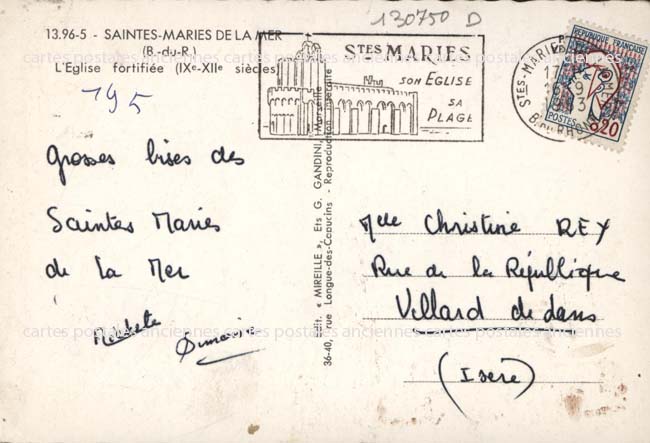 130750 D
13.96-5 - SAINTES-MARIES DE LA MER
(B.-du-R.)
L'Eglise fortifiée (IXe-XIIe siècles)
195
STES MARIES
SON EGLISE
SA
PLAGE
STES-MARIES
17
16-9
B. DU RHONE
REPUBLIQUE FRANÇAISE
POSTES
0,20
Grosses bises des
Saintes Maries
de La Mer
Edit. « MIREILLE », Ets G. GANDINI, Marseille
36-40, rue Longue-des-Capucins - Reproduction interdite
Melle Christine REY
Rue de la République
Villard de dans
(Isère)
cartes postales anciennes cartes postales anciennes cartes postales anciennes